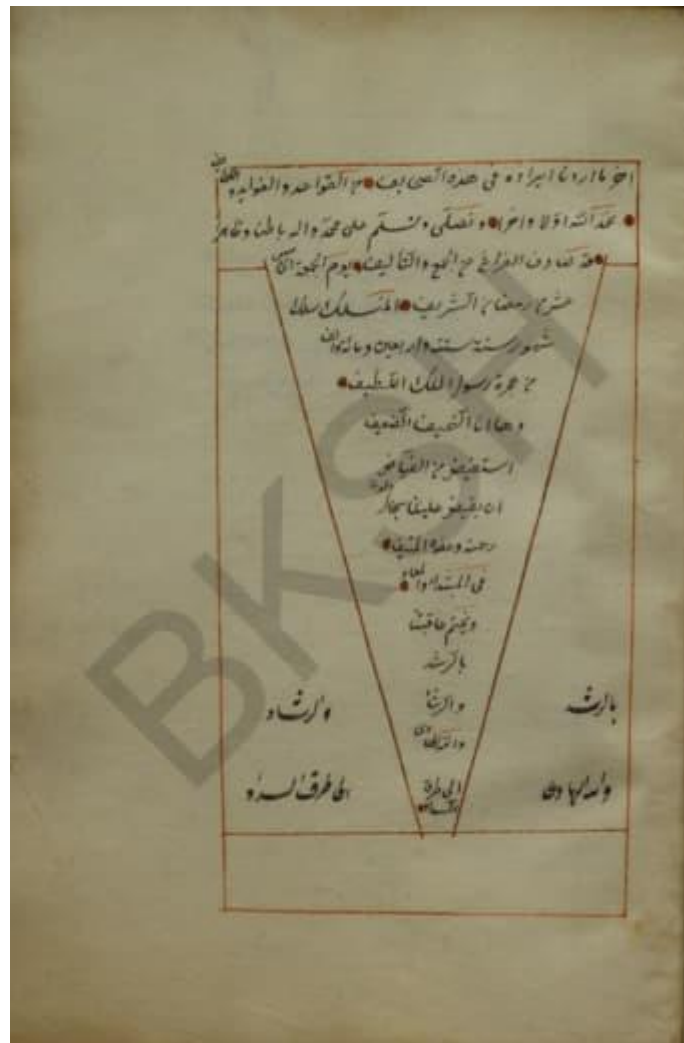 اخر ما اردنا ايراده فى هذه الصحايف من القواعد والفوايد
نحمد الله اولا واخرا ونصلى ونسلم على محمد واله باطنا وظاهرا
قد تصادف الفراغ من الجمع والتأليف يوم الجمعة
عشر رمضان الشريف المنسلك سلك
شهور سنة ستة واربعين ومائة والف
من هجرة رسول الملك اللطيف
وها انا النحيف الضعيف
استفيض من الفياض
ان يفيض علينا بحار
رحمته وعفوه
فى المبتدا والمعاد
ويختم عاقبتنا
بالرشد
والرشاد
والله الهادى
الى طرق
السداد
بالرشد
والرشاد
والله الهادى
الى طرق السداد
BKSH